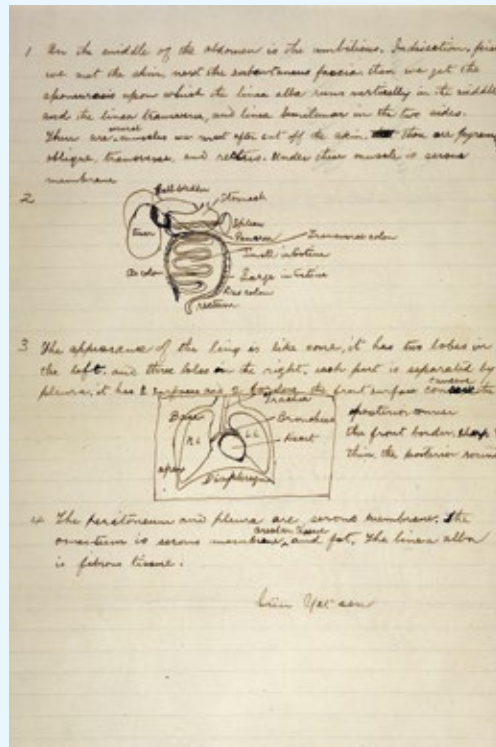 1 In the middle of the abdomen is the umbilicus. In disection, first
we met the skin, next the subcutaneous fascia then we get the
aponeurosis upon which the linea alba runs vertically in the middle
and the linea transversa, and linea semilunar in the two sides.
There are several muscles we met after cut off the skin. thou are pyram
oblique, transverse, and rectus. Under their muscle is serous
membrane
2
Gall bladder
Stomach
Liver
Spleen
Pancreas
Transverse colon
Small intestine
As colon
Large intestine
Des colon
rectum
3 The appearance of the lung is like cone, it has two lobes in
the left, and three lobes in the right, each part is separated by
pleura, it has 2 surfaces and 2 borders the front surface the
Trachea
concave
Base
Bronchus
posterior
R.L
L.L
Heart
the front border, sharp
apex
thin, the posterior round
Diaphragm
4 The peritoneum and pleura are serous membrane. The
omentum is serous membrane, areolar tissue and fat. The linea alba
is fibrous tissue.
Sün Yat sen